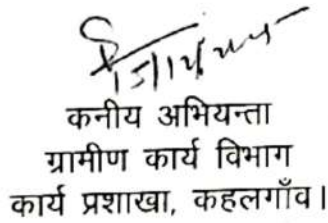 कनीय अभियन्ता
ग्रामीण कार्य विभाग
कार्य प्रशाखा, कहलगाँव।